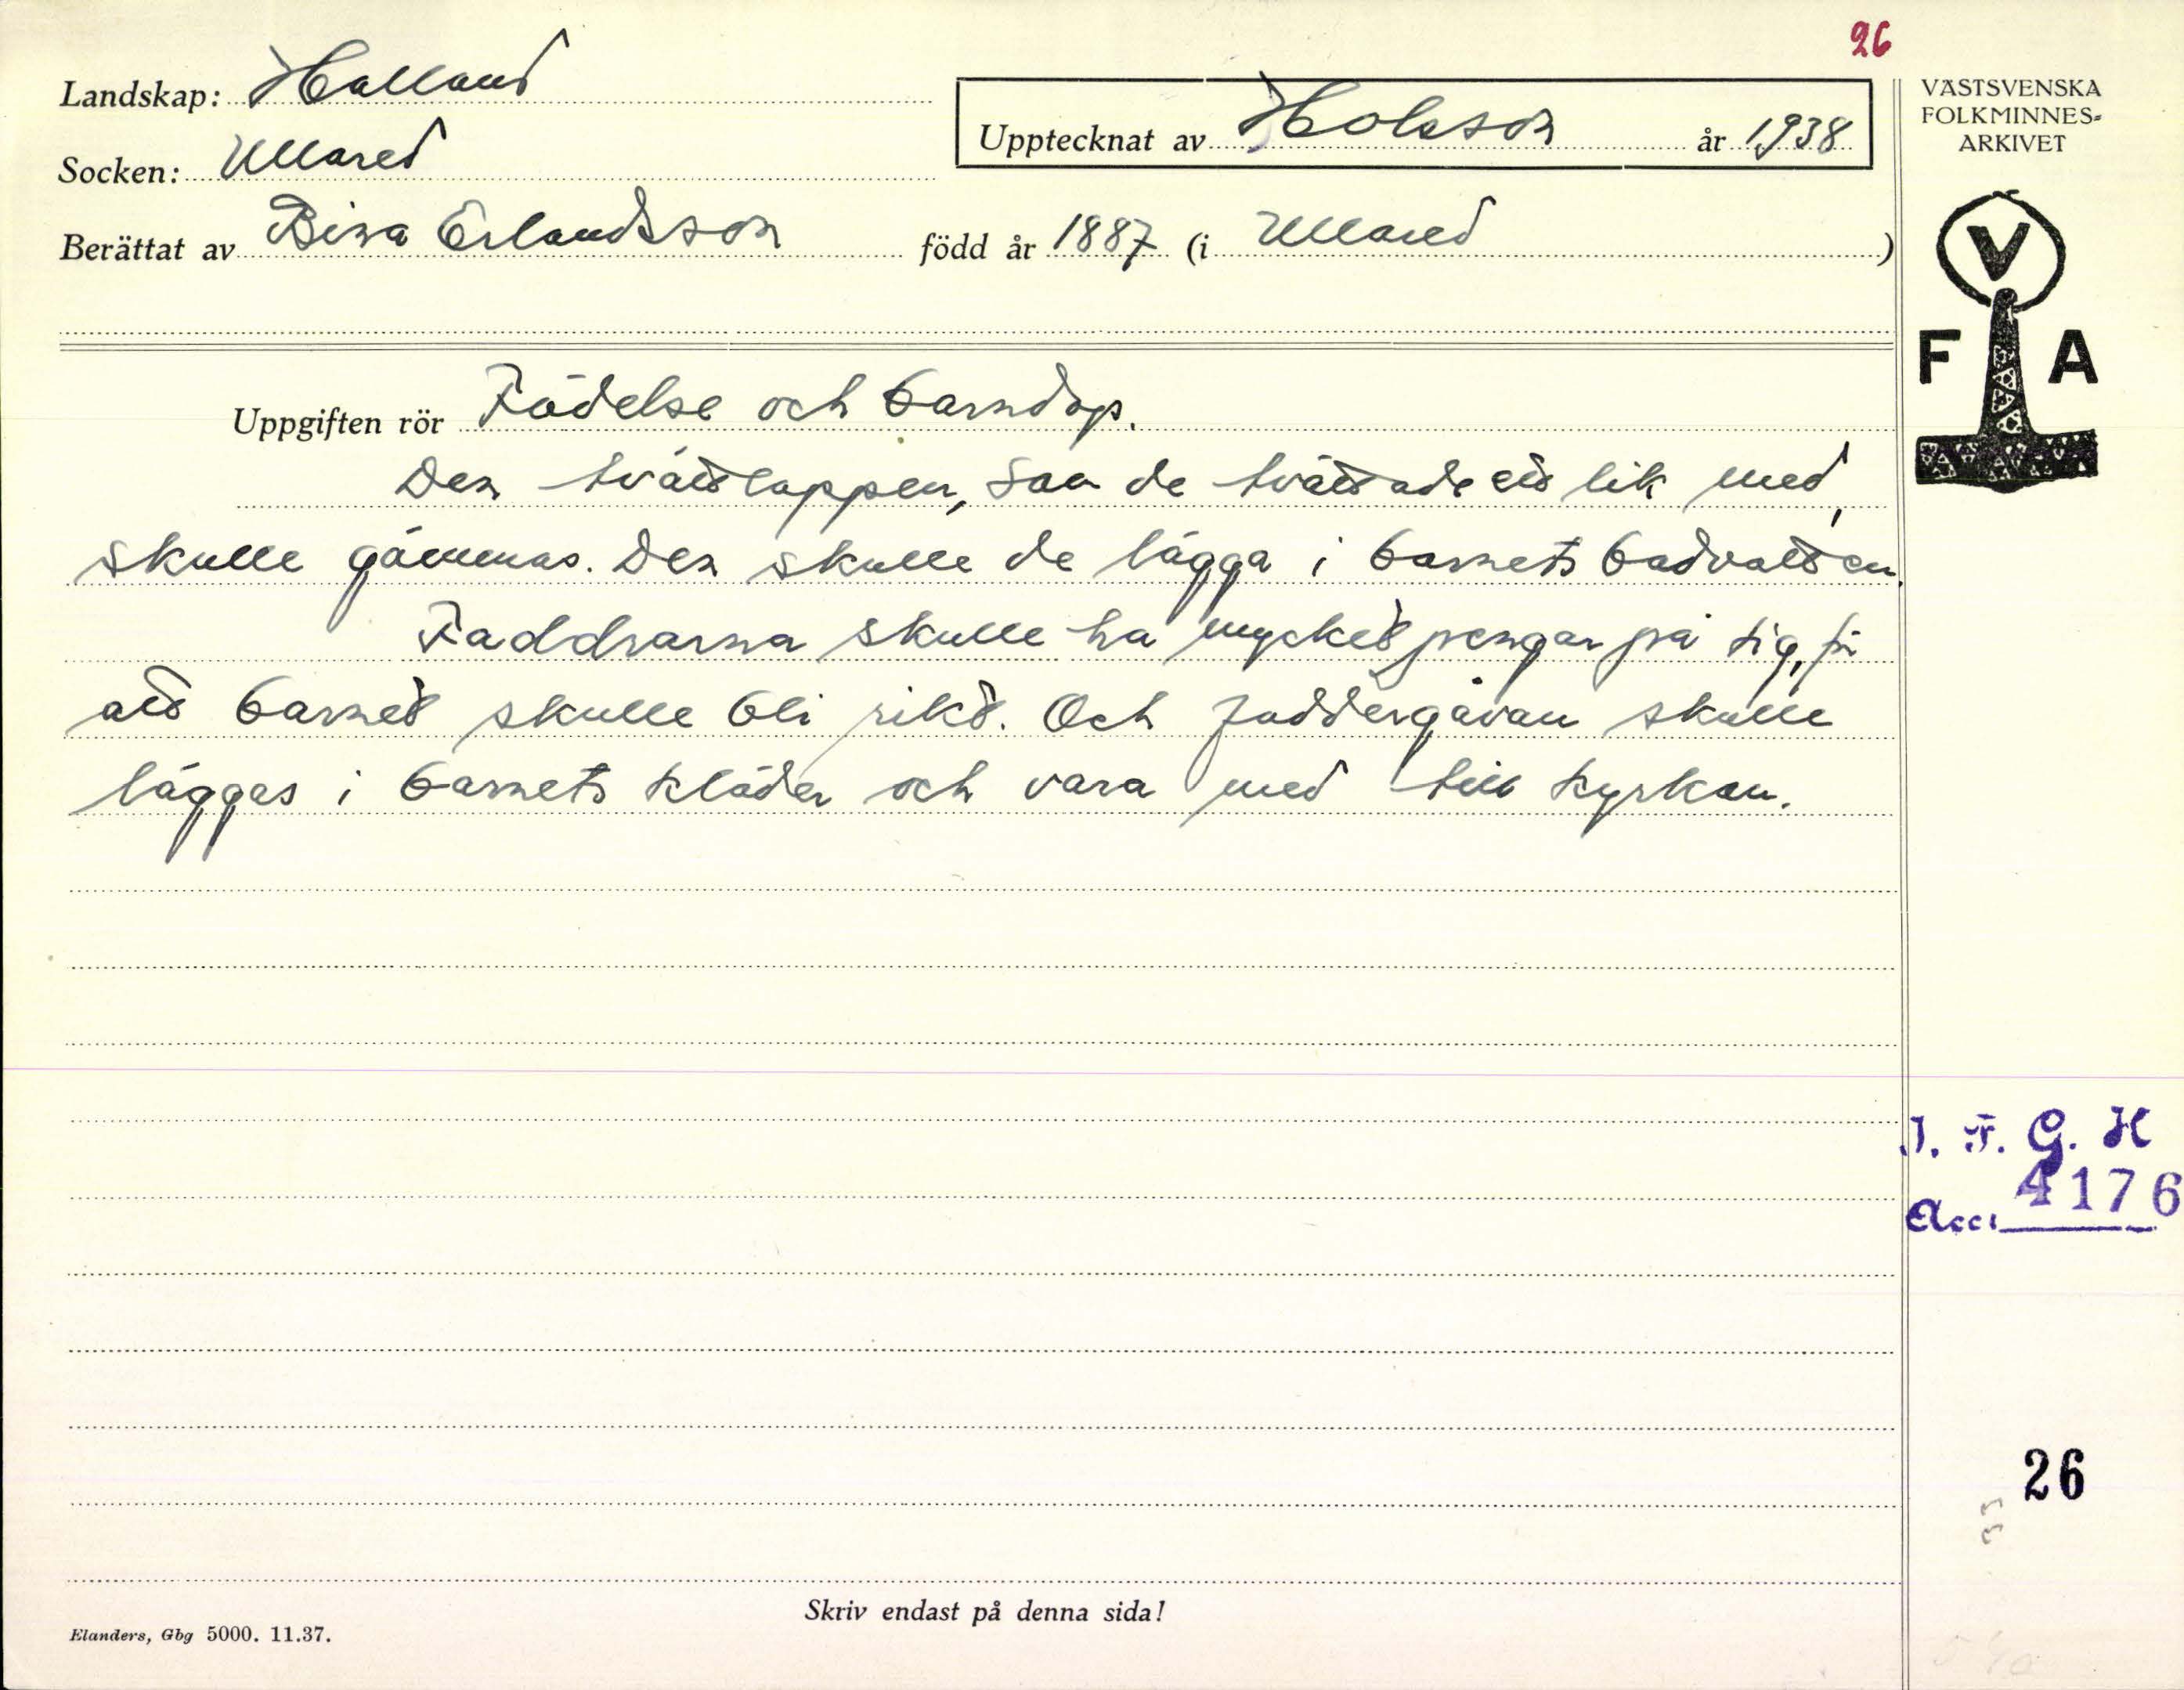 26
Landskap: Halland
Upptecknat av Holsson år 1938
Socken: Ullared
Berättat av Bina Erlandsson född år 1887 (i Ullared)
VÄSTSVENSKA
FOLKMINNES-
ARKIVET
V
F A
Uppgiften rör Födelse och barndop.
Den tvättlappen, som de tvättade ett lik med,
skulle gömmas. Den skulle de lägga i barnets badvatten.
Faddrarna skulle ha mycket pengar på sig, för
att barnet skulle bli rikt. Och faddergåvan skulle
läggas i barnets kläder och vara med till kyrkan.
I. F. G. H
4176
Acc.
26
Skriv endast på denna sida!
Elanders, Gbg 5000. 11.37.